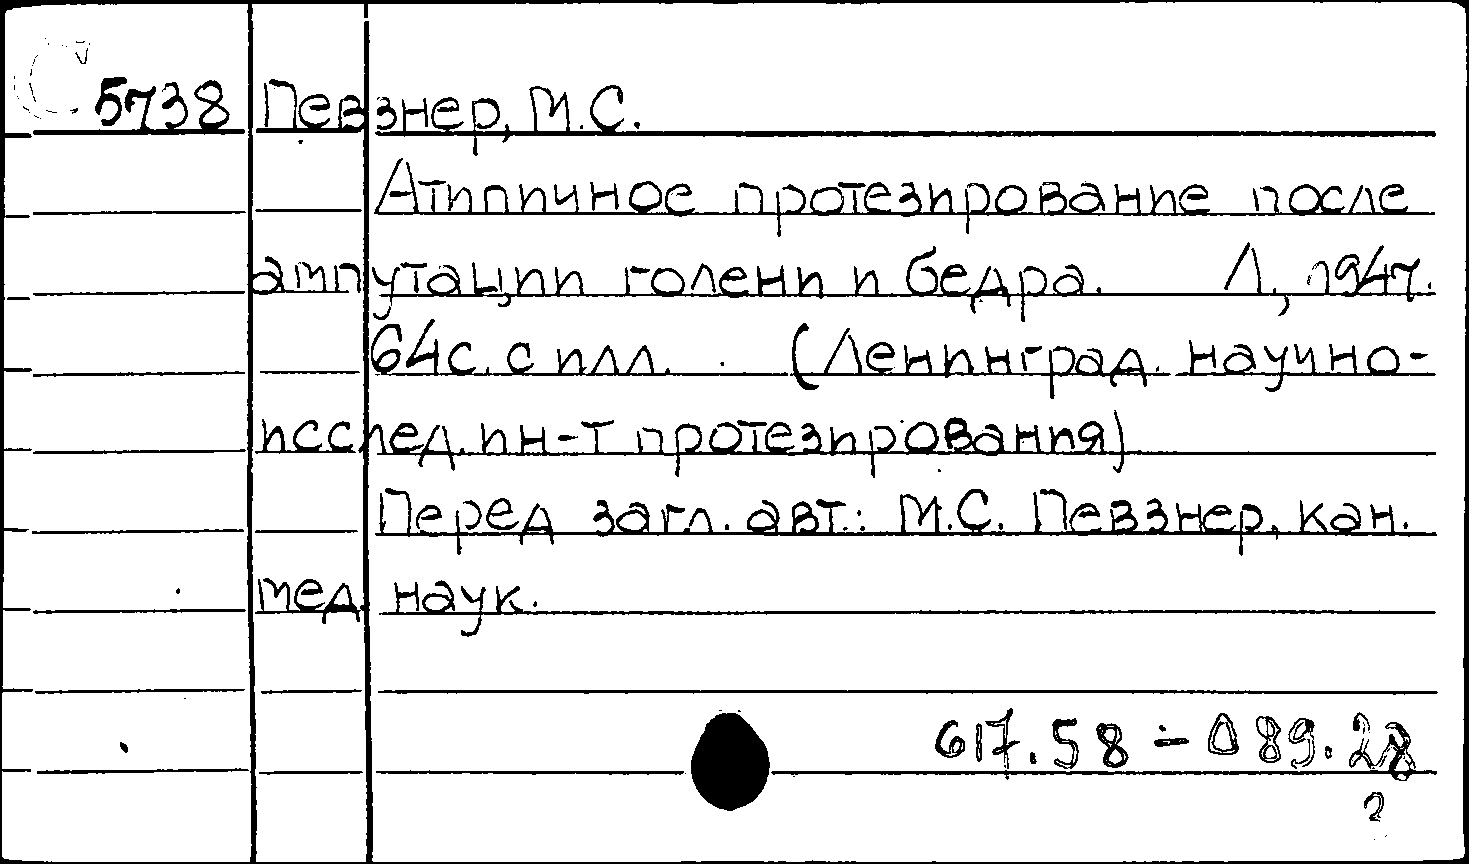 С 5738 Певзнер, М.С.
Атипичное протезирование после
ампутации голени и бедра. Л., 1947.
64с. с илл. (Ленинград. научно-
исслед. ин-т протезирования)
Перед загл. авт.: М.С. Певзнер, кан.
мед. наук.
617.58-089.28
2